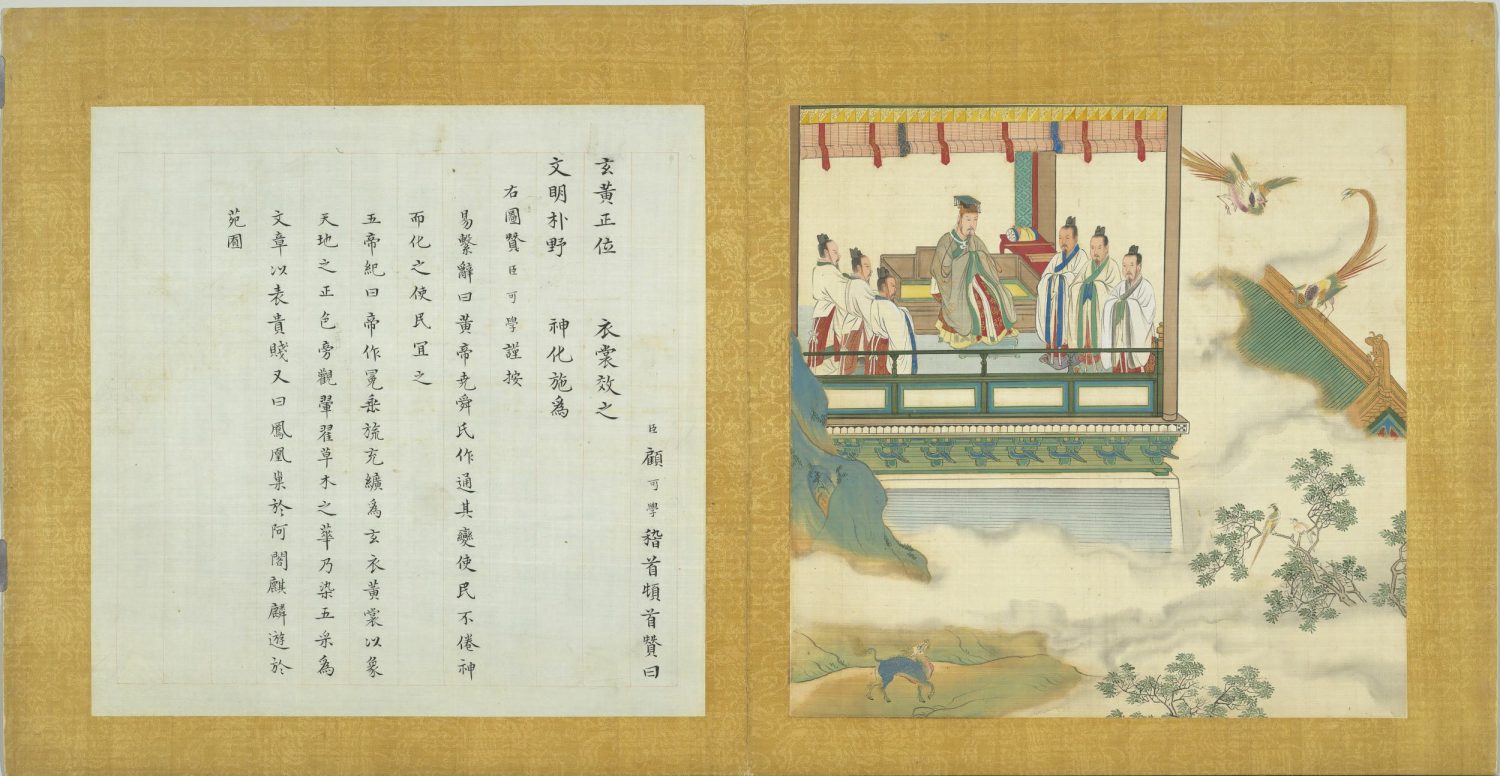 臣顧可學稽首頓首贊曰
玄黃正位 衣裳效之
文明朴野 神化施為
右圖贊臣可學謹按
易繫辭曰黃帝堯舜氏作通其變使民不倦神
而化之使民冝之
五帝紀曰帝作冕垂旒充纊為玄衣黃裳以象
天地之正色旁觀翬翟草木之華乃染五采為
文章以表貴賤又曰鳳凰巢於阿閣麒麟遊於
苑囿